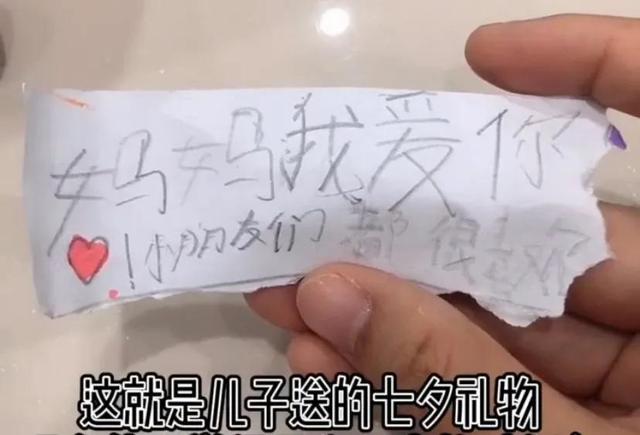 妈妈我爱你
❤!小朋友们都很喜欢你
这就是儿子送的七夕礼物